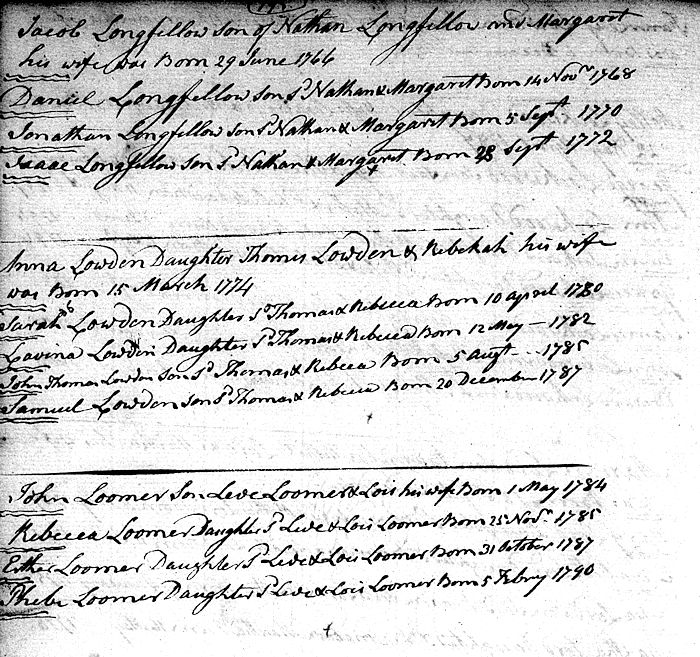 Jacob Longfellow son of Nathan Longfellow and Margaret
his wife was Born 29 June 1766
Daniel Longfellow son Sd Nathan & Margaret Born 14 Novr 1768
Jonathan Longfellow son Sd Nathan & Margaret Born 5 Sept 1770
Isaac Longfellow son Sd Nathan & Margaret Born 28 Sept 1772
Anna Lowden Daughter Thomas Lowden & Rebekah his wife
was Born 15 March 1774
Sarah Lowden Daughter Sd Thomas & Rebecca Born 10 april 1780
Lavina Lowden Daughter Sd Thomas & Rebecca Born 12 May – 1782
John Thomas Lowden Son Sd Thomas & Rebecca Born 5 Augt – 1785
Samuel Lowden son Sd Thomas & Rebecca Born 20 December 1787
John Loomer Son Leve Loomer & Lois his wife Born 1 May 1784
Rebecca Loomer Daughter Sd Leve & Lois Loomer Born 25 Novr 1785
Esther Loomer Daughter Sd Leve & Lois Loomer Born 31 October 1787
Phebe Loomer Daughter Sd Leve & Lois Loomer Born 5 Febry 1790